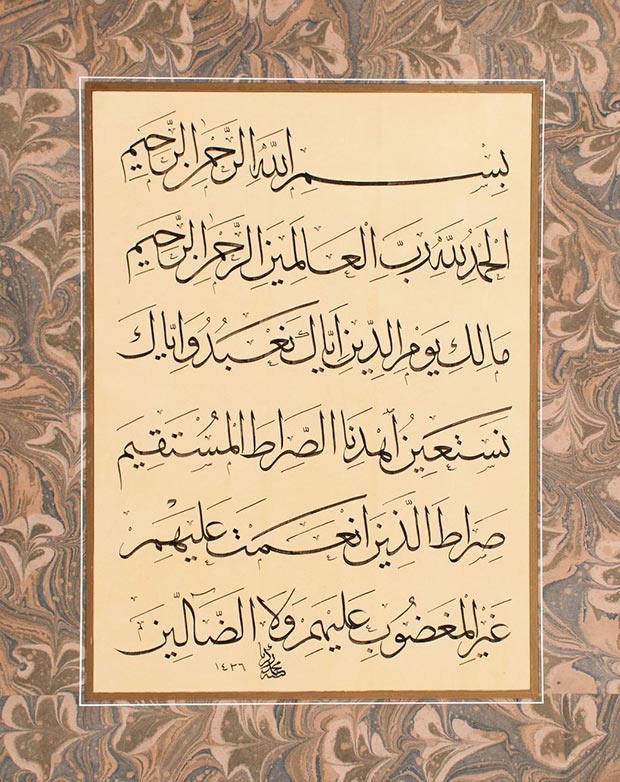 بسم الله الرحمن الرحيم
الحمد لله رب العالمين الرحمن الرحيم
مالك يوم الدين اياك نعبد واياك
نستعين اهدنا الصراط المستقيم
صراط الذين انعمت عليهم
غير المغضوب عليهم ولا الضالين
١٤٣٦